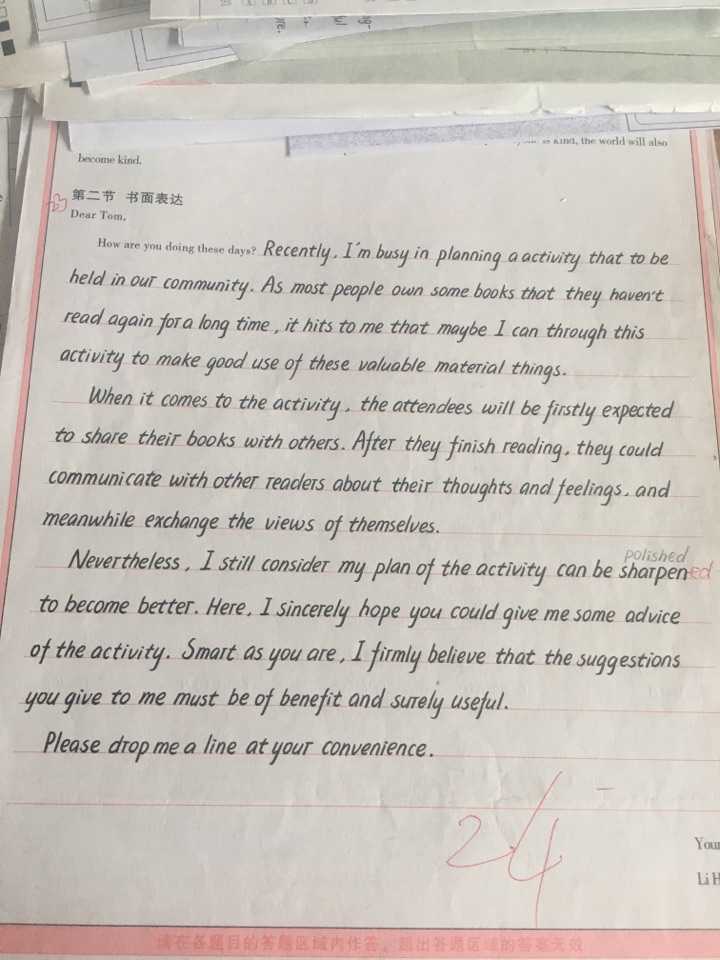 is kind, the world will also
become kind.
第二节 书面表达
Dear Tom,
How are you doing these days? Recently, I'm busy in planning a activity that to be
held in our community. As most people own some books that they haven't
read again for a long time, it hits to me that maybe I can through this
activity to make good use of these valuable material things.
When it comes to the activity, the attendees will be firstly expected
to share their books with others. After they finish reading, they could
communicate with other readers about their thoughts and feelings, and
meanwhile exchange the views of themselves.
polished
Nevertheless, I still consider my plan of the activity can be sharpened
to become better. Here, I sincerely hope you could give me some advice
of the activity. Smart as you are, I firmly believe that the suggestions
you give to me must be of benefit and surely useful.
Please drop me a line at your convenience.
24
You
Li H
请在各题目的答题区域内作答，超出答题区域的答案无效